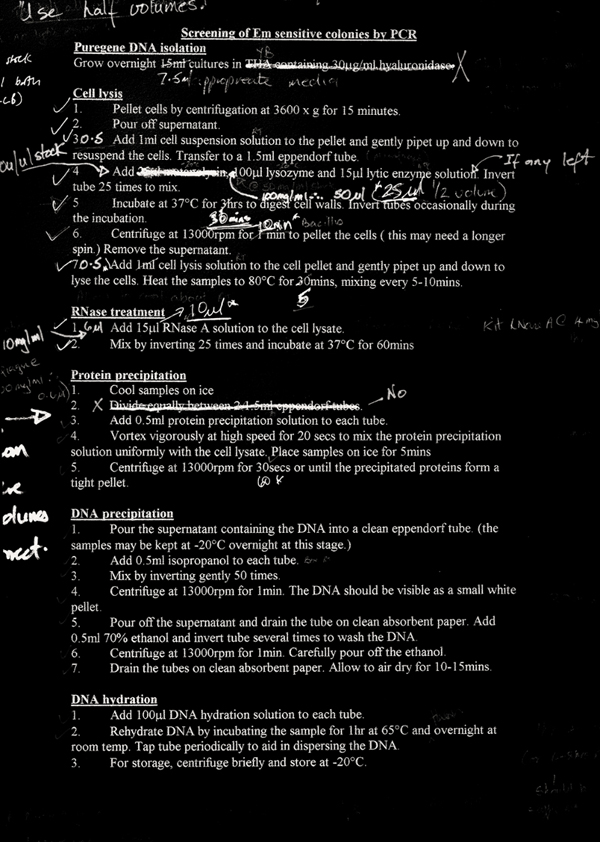 "Use half volumes.
Screening of Em sensitive colonies by PCR
Puregene DNA isolation
YB
Grow overnight 15ml cultures in THA containing 30μg/ml hyaluronidase X
7.5ml appropriate media
stock
Cell lysis
1. Pellet cells by centrifugation at 3600 x g for 15 minutes.
2. Pour off supernatant.
3 0.5 Add 1ml cell suspension solution to the pellet and gently pipet up and down to
resuspend the cells. Transfer to a 1.5ml eppendorf tube.
If any left
4 Add 100μl lysozyme and 15μl lytic enzyme solution. Invert
tube 25 times to mix.
100mg/ml 50μl 25μl 1/2 volume
5 Incubate at 37°C for 3hrs to digest cell walls. Invert tubes occasionally during
the incubation.
30mins 10min* Bacillus
6. Centrifuge at 13000rpm for 1 min to pellet the cells ( this may need a longer
spin.) Remove the supernatant.
7 0.5. Add 1ml cell lysis solution to the cell pellet and gently pipet up and down to
lyse the cells. Heat the samples to 80°C for 30mins, mixing every 5-10mins.
5
RNase treatment 10μl*
1. 6μl Add 15μl RNase A solution to the cell lysate.
10mg/ml
2. Mix by inverting 25 times and incubate at 37°C for 60mins
Protein precipitation
1. Cool samples on ice
2. X Divide equally between 2 1.5ml eppendorf tubes. No
3. Add 0.5ml protein precipitation solution to each tube.
4. Vortex vigorously at high speed for 20 secs to mix the protein precipitation
solution uniformly with the cell lysate. Place samples on ice for 5mins
5. Centrifuge at 13000rpm for 30secs or until the precipitated proteins form a
tight pellet.
60
DNA precipitation
1. Pour the supernatant containing the DNA into a clean eppendorf tube. (the
samples may be kept at -20°C overnight at this stage.)
2. Add 0.5ml isopropanol to each tube.
3. Mix by inverting gently 50 times.
4. Centrifuge at 13000rpm for 1min. The DNA should be visible as a small white
pellet.
5. Pour off the supernatant and drain the tube on clean absorbent paper. Add
0.5ml 70% ethanol and invert tube several times to wash the DNA.
6. Centrifuge at 13000rpm for 1min. Carefully pour off the ethanol.
7. Drain the tubes on clean absorbent paper. Allow to air dry for 10-15mins.
DNA hydration
1. Add 100μl DNA hydration solution to each tube.
2. Rehydrate DNA by incubating the sample for 1hr at 65°C and overnight at
room temp. Tap tube periodically to aid in dispersing the DNA.
3. For storage, centrifuge briefly and store at -20°C.